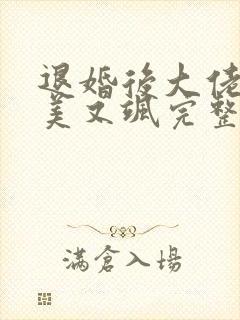 退婚後大佬
美又颯完整
滿倉入場